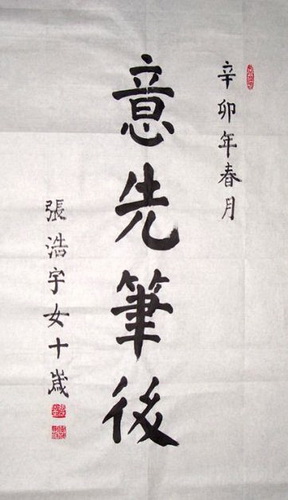 辛卯年春月
意先筆後
張浩宇女十歲